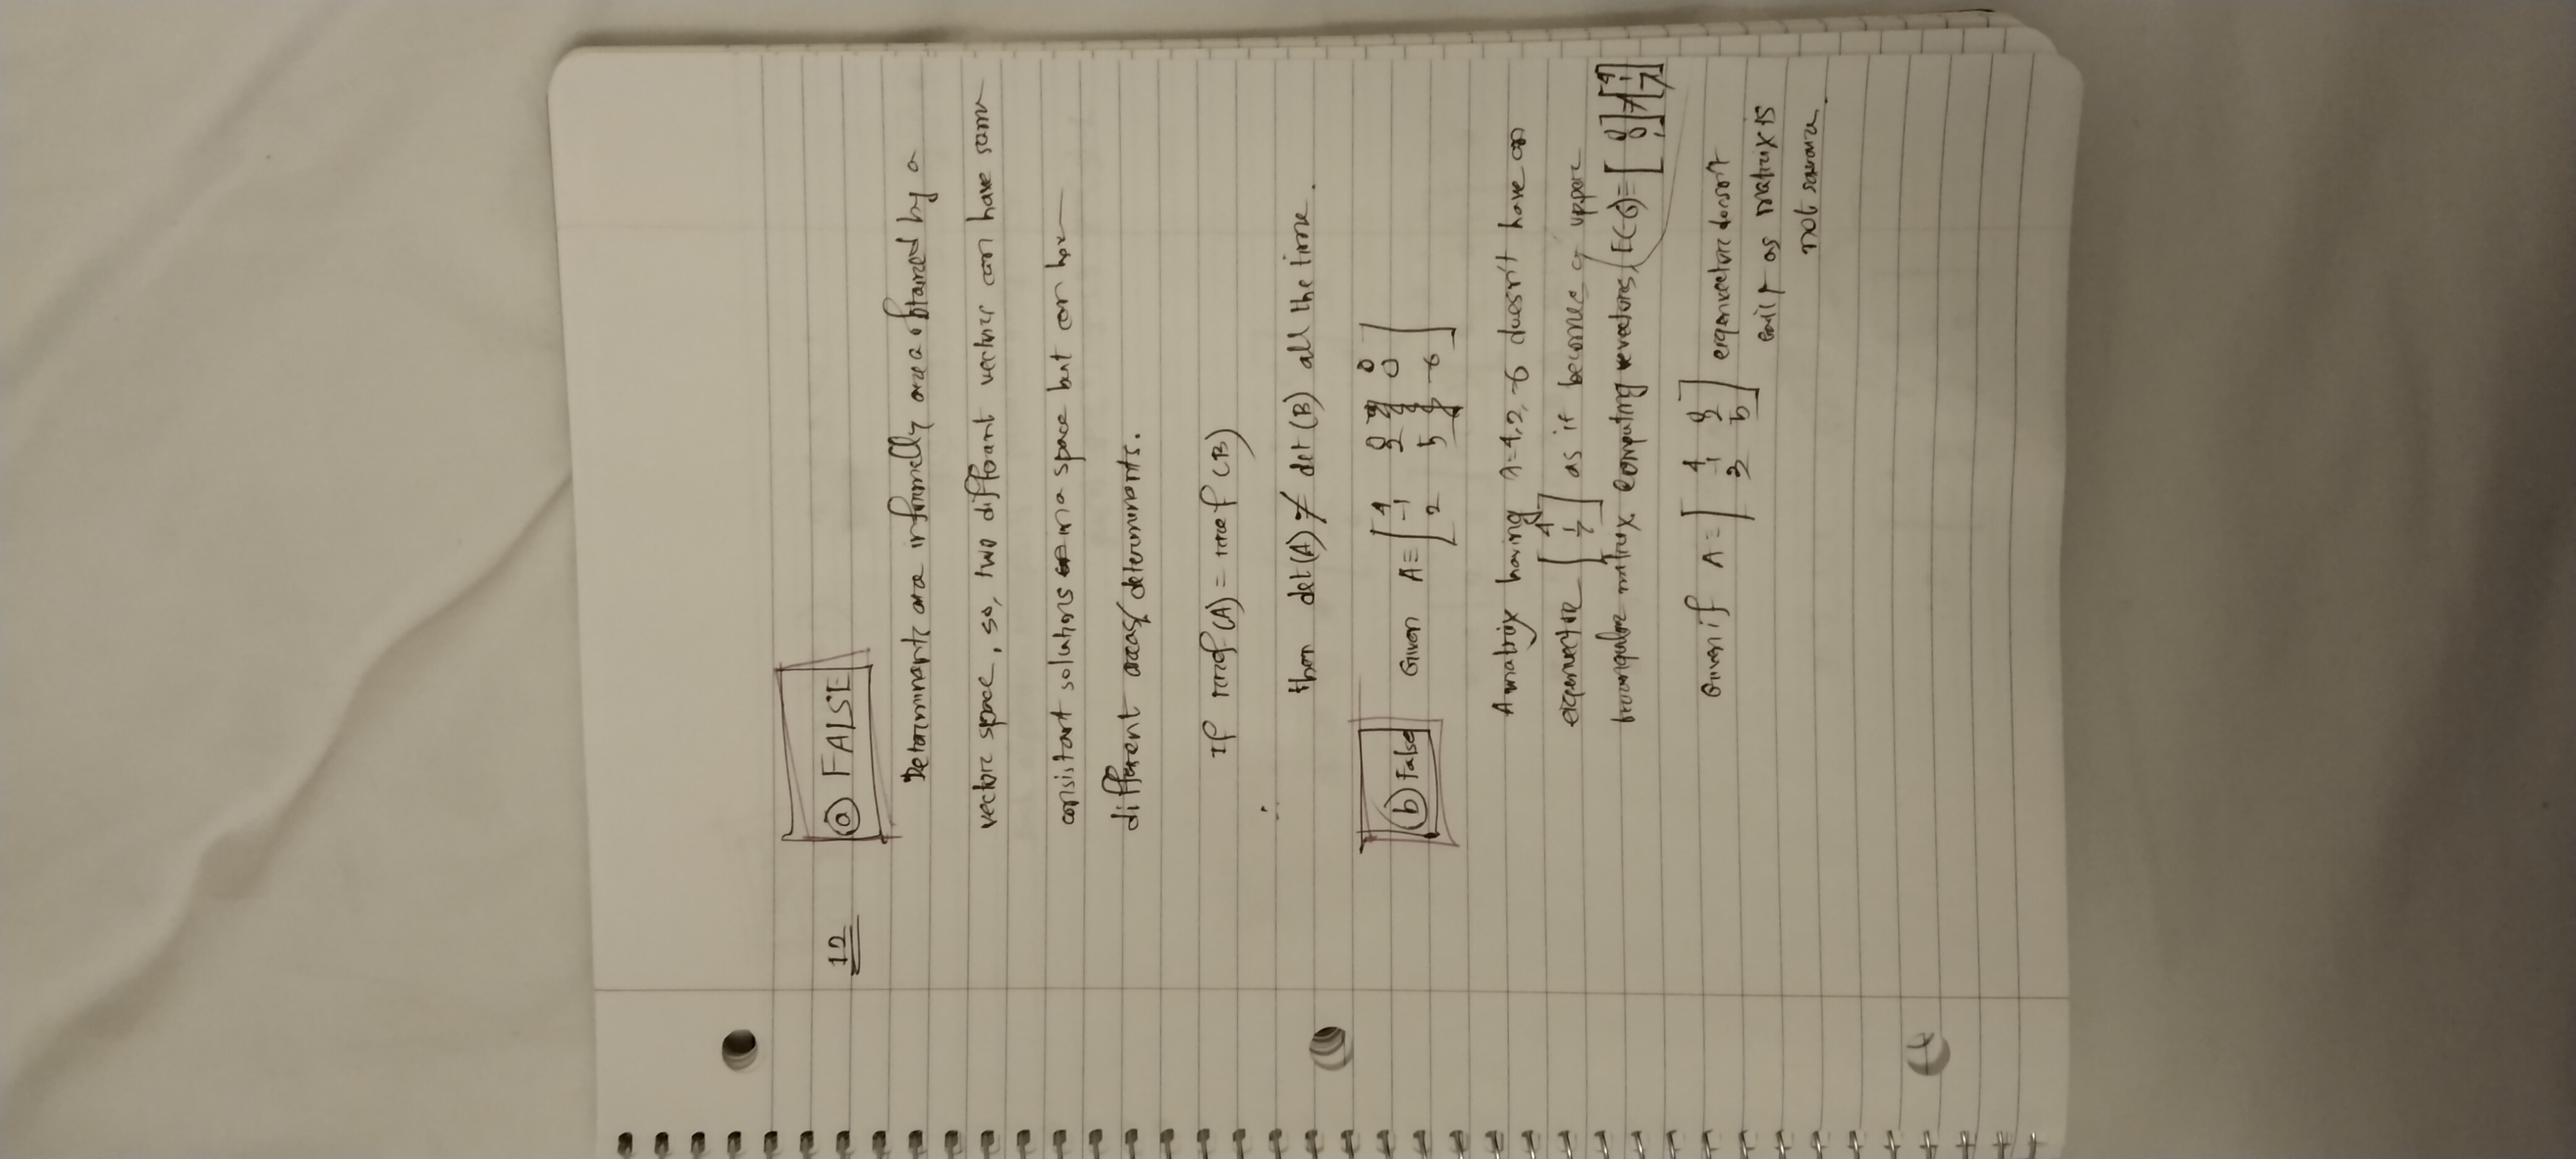 12
(a) FALSE
Determinants are informally area obtained by a
vector space, so, two different vectors can have same
consistant solutions in a space but can have
different areas/determinants.
If rref(A) = rref(B)
∴
then det(A) ≠ det(B) all the time.
(b) False Given A = [ 4 0 0
-1 2 0
2 5 -6 ]
A matrix having λ=4,2,-6 doesn't have an
eigenvector [ 4 1 7 ] as it becomes a upper
triangular matrix. Computing vectors, E(-6) = [ 0 0 1 ] ≠ [ 4 1 7 ]
Given if A = [ 4 0
-1 2
3 5 ] eigenvector doesn't
exist as matrix is
not square.